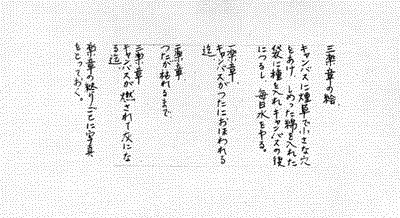 三楽章の絵
キャンバスに煙草で小さな穴
をあけ しめった綿を入れた
袋に種を入れキャンバスの後
につるし 毎日水をやる。
一楽章
キャンバスがつたにおほわれる
迄
二楽章
つたが枯れるまで
三楽章
キャンバスが燃されて灰にな
る迄
楽章の終りごとに写真
をとっておく。